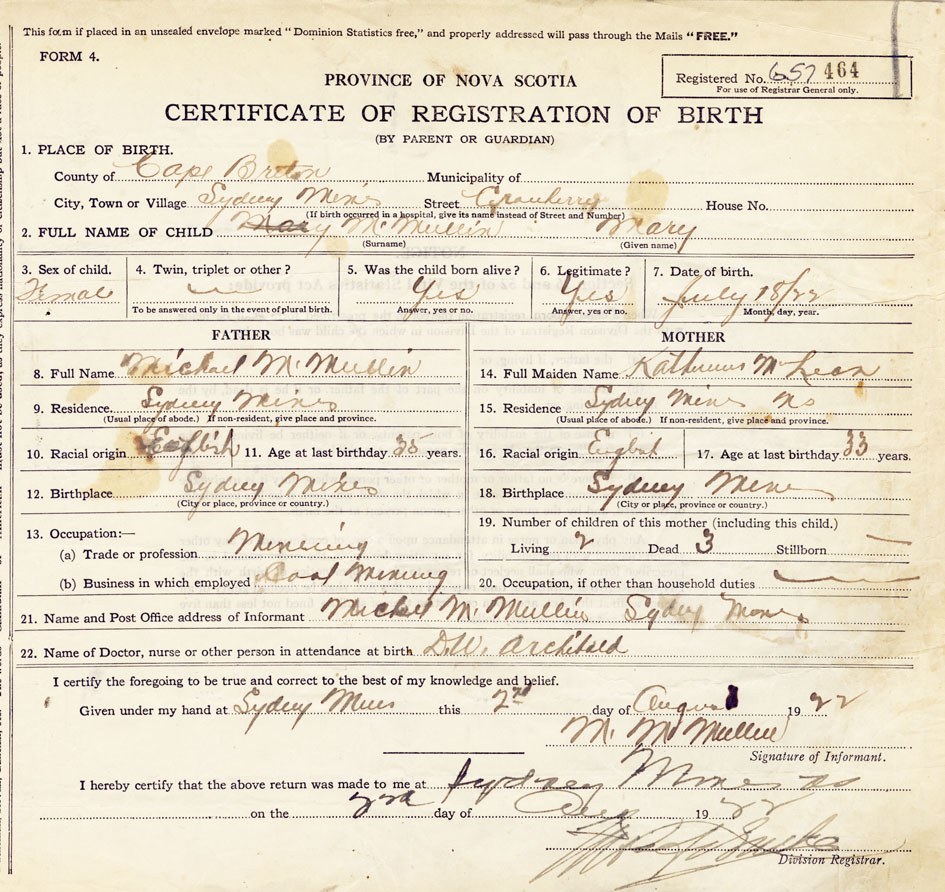 This form if placed in an unsealed envelope marked "Dominion Statistics free," and properly addressed will pass through the Mails "FREE."
FORM 4.
Registered No. 657 464
For use of Registrar General only.
PROVINCE OF NOVA SCOTIA
CERTIFICATE OF REGISTRATION OF BIRTH
(BY PARENT OR GUARDIAN)
1. PLACE OF BIRTH.
County of Cape Breton Municipality of
City, Town or Village Sydney Mines Street Cranberry House No.
(If birth occurred in a hospital, give its name instead of Street and Number)
2. FULL NAME OF CHILD Mary McMullin Mary
(Surname) (Given name)
3. Sex of child. 4. Twin, triplet or other? 5. Was the child born alive? 6. Legitimate? 7. Date of birth.
Female Yes Yes July 18/22
To be answered only in the event of plural birth. Answer, yes or no. Answer, yes or no. Month, day, year.
FATHER MOTHER
8. Full Name Michael McMullin 14. Full Maiden Name McLean
9. Residence Sydney Mines 15. Residence Sydney Mines NS
(Usual place of abode.) If non-resident, give place and province. (Usual place of abode.) If non-resident, give place and province.
10. Racial origin English 11. Age at last birthday 35 years. 16. Racial origin English 17. Age at last birthday 33 years.
12. Birthplace Sydney Mines 18. Birthplace Sydney Mines
(City or place, province or country.) (City or place, province or country.)
13. Occupation:— 19. Number of children of this mother (including this child.)
(a) Trade or profession Minening Living 2 Dead 3 Stillborn —
(b) Business in which employed Coal Mining 20. Occupation, if other than household duties —
21. Name and Post Office address of Informant Michael McMullin Sydney Mines
22. Name of Doctor, nurse or other person in attendance at birth D.W. Archibald
I certify the foregoing to be true and correct to the best of my knowledge and belief.
Given under my hand at Sydney Mines this 2nd day of August 1922
M. McMullin
Signature of Informant.
I hereby certify that the above return was made to me at Sydney Mines NS
on the 2nd day of Aug 1922
Division Registrar.